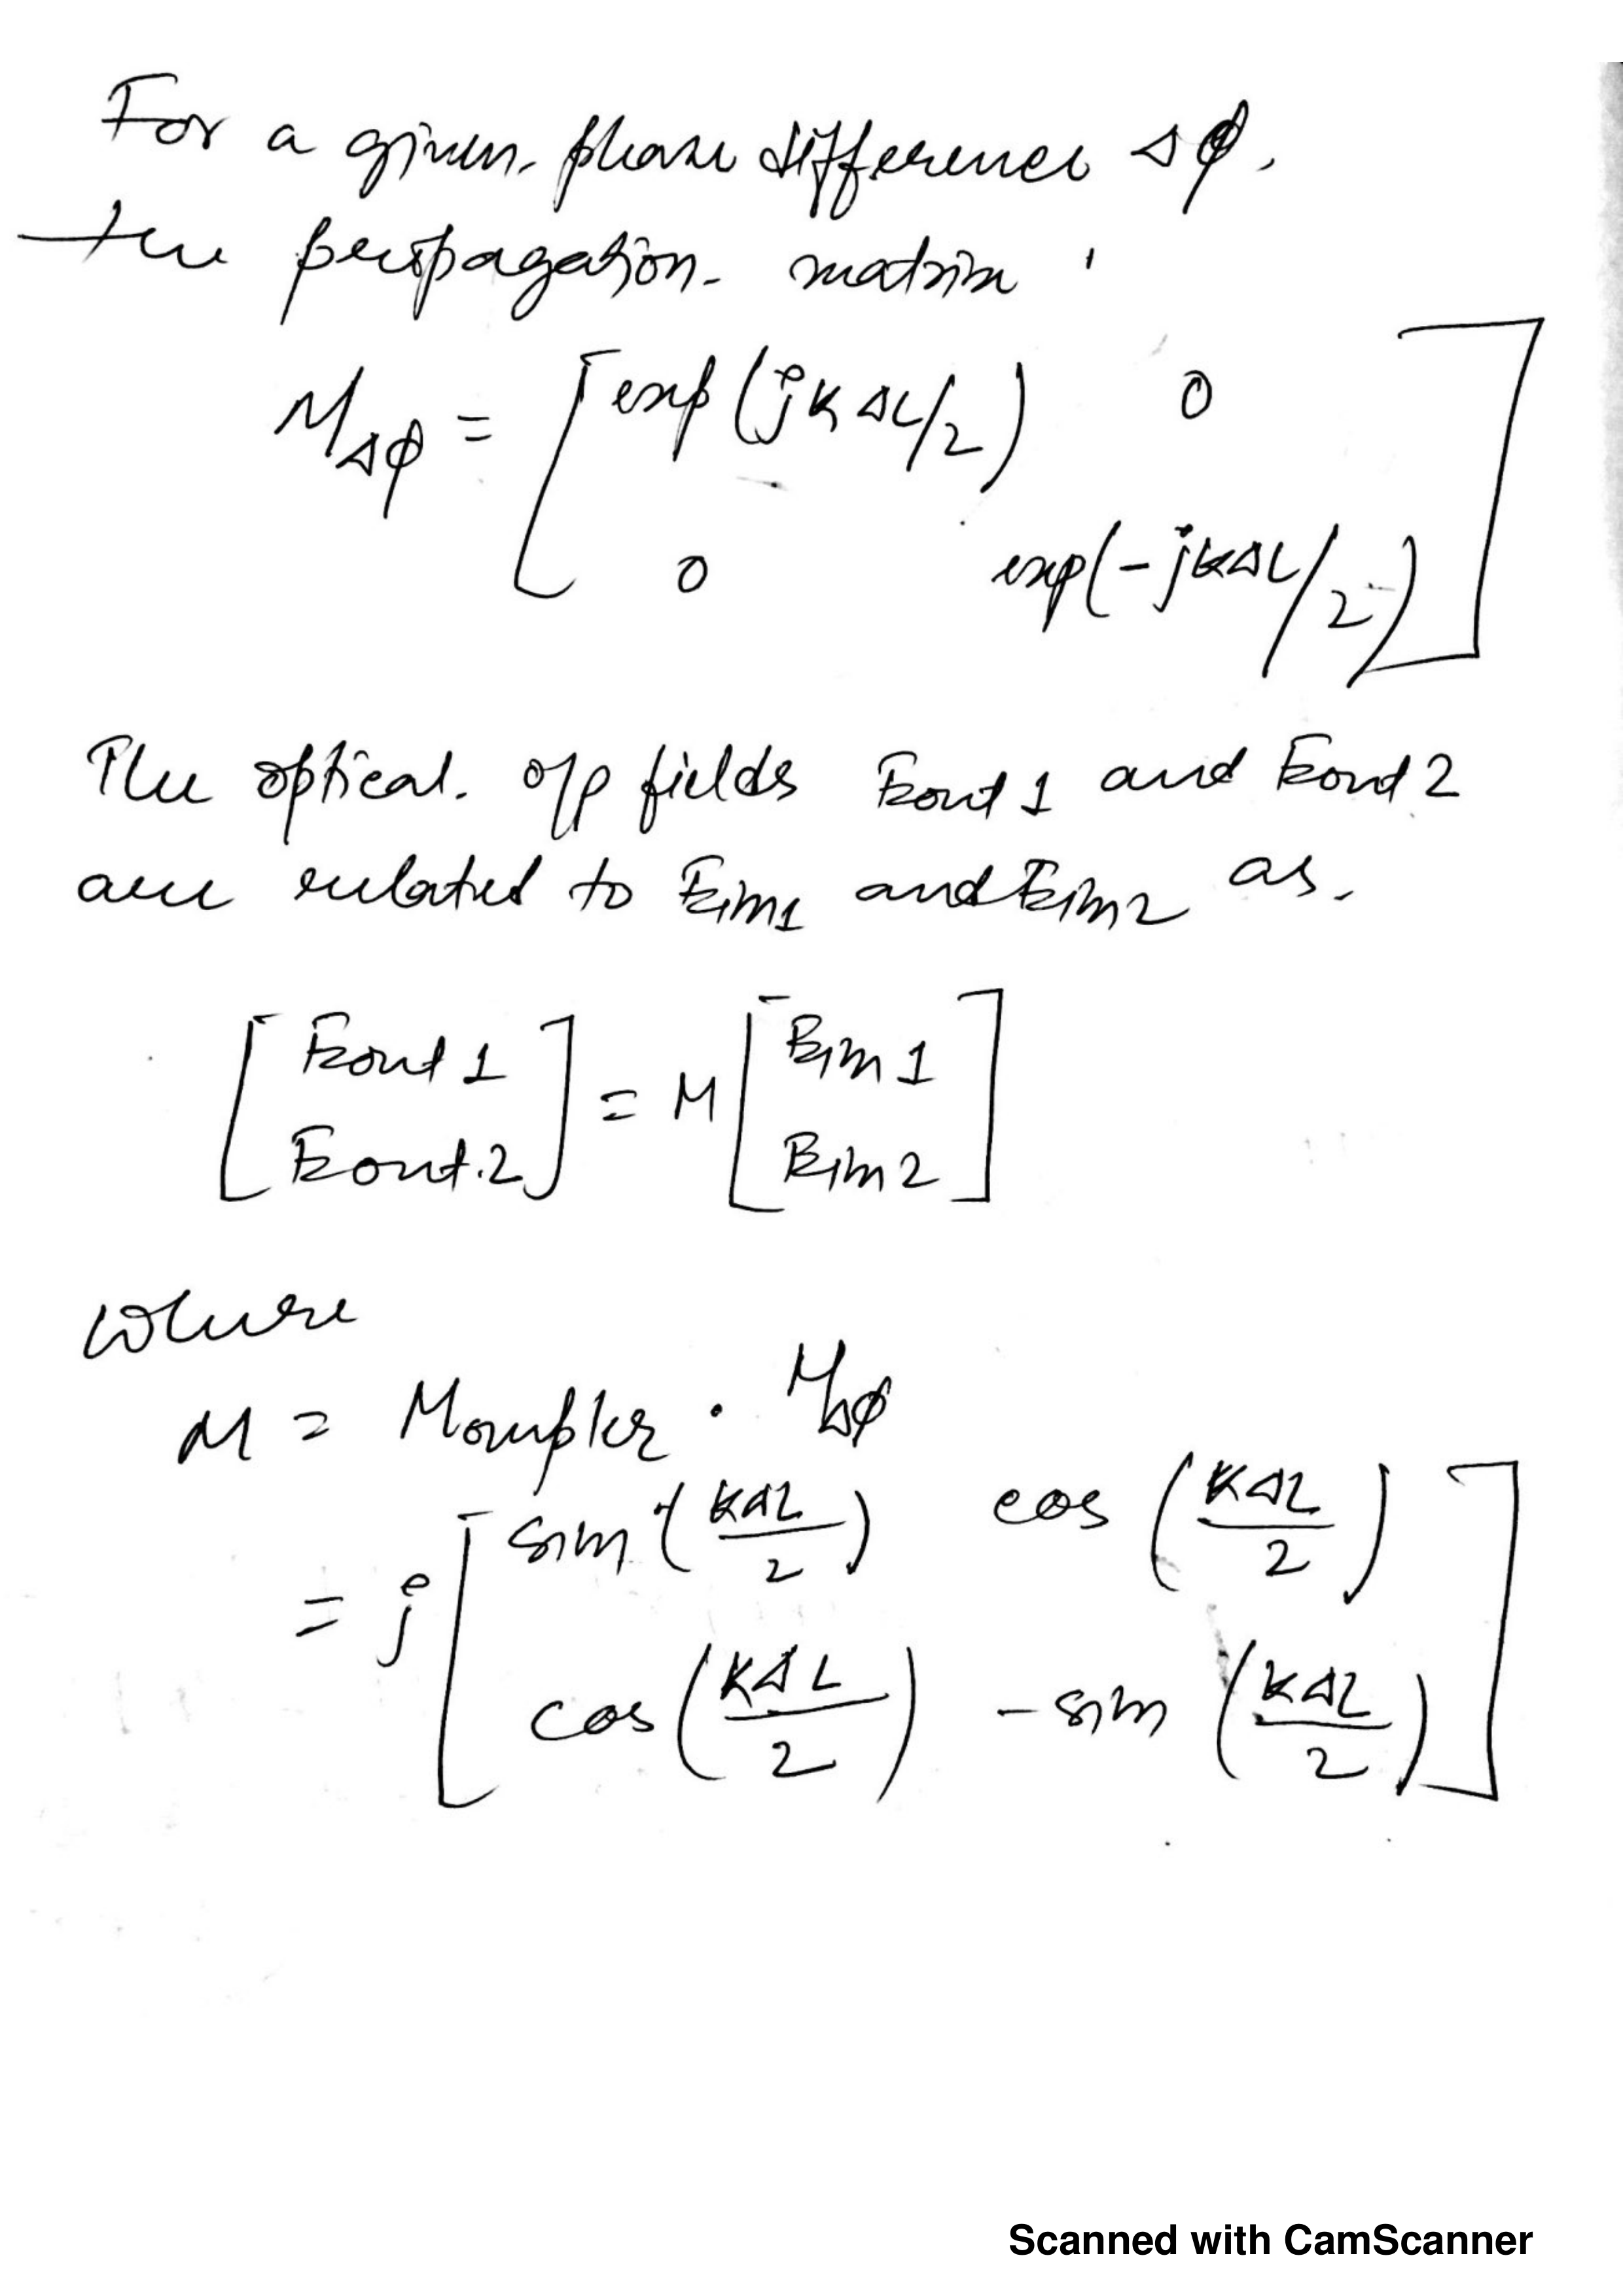 For a given phase difference Δφ,
the propagation matrix
M_Δφ = [ exp(jkΔL/2) 0
0 exp(-jkΔL/2) ]
The optical o/p fields Eout 1 and Eout 2
are related to Ein1 and Ein2 as.
[ Eout 1
Eout.2 ] = M [ Ein 1
Ein 2 ]
where
M = Mcoupler . M_Δφ
= j [ sin (kΔL/2) cos (kΔL/2)
cos (kΔL/2) -sin (kΔL/2) ]
Scanned with CamScanner